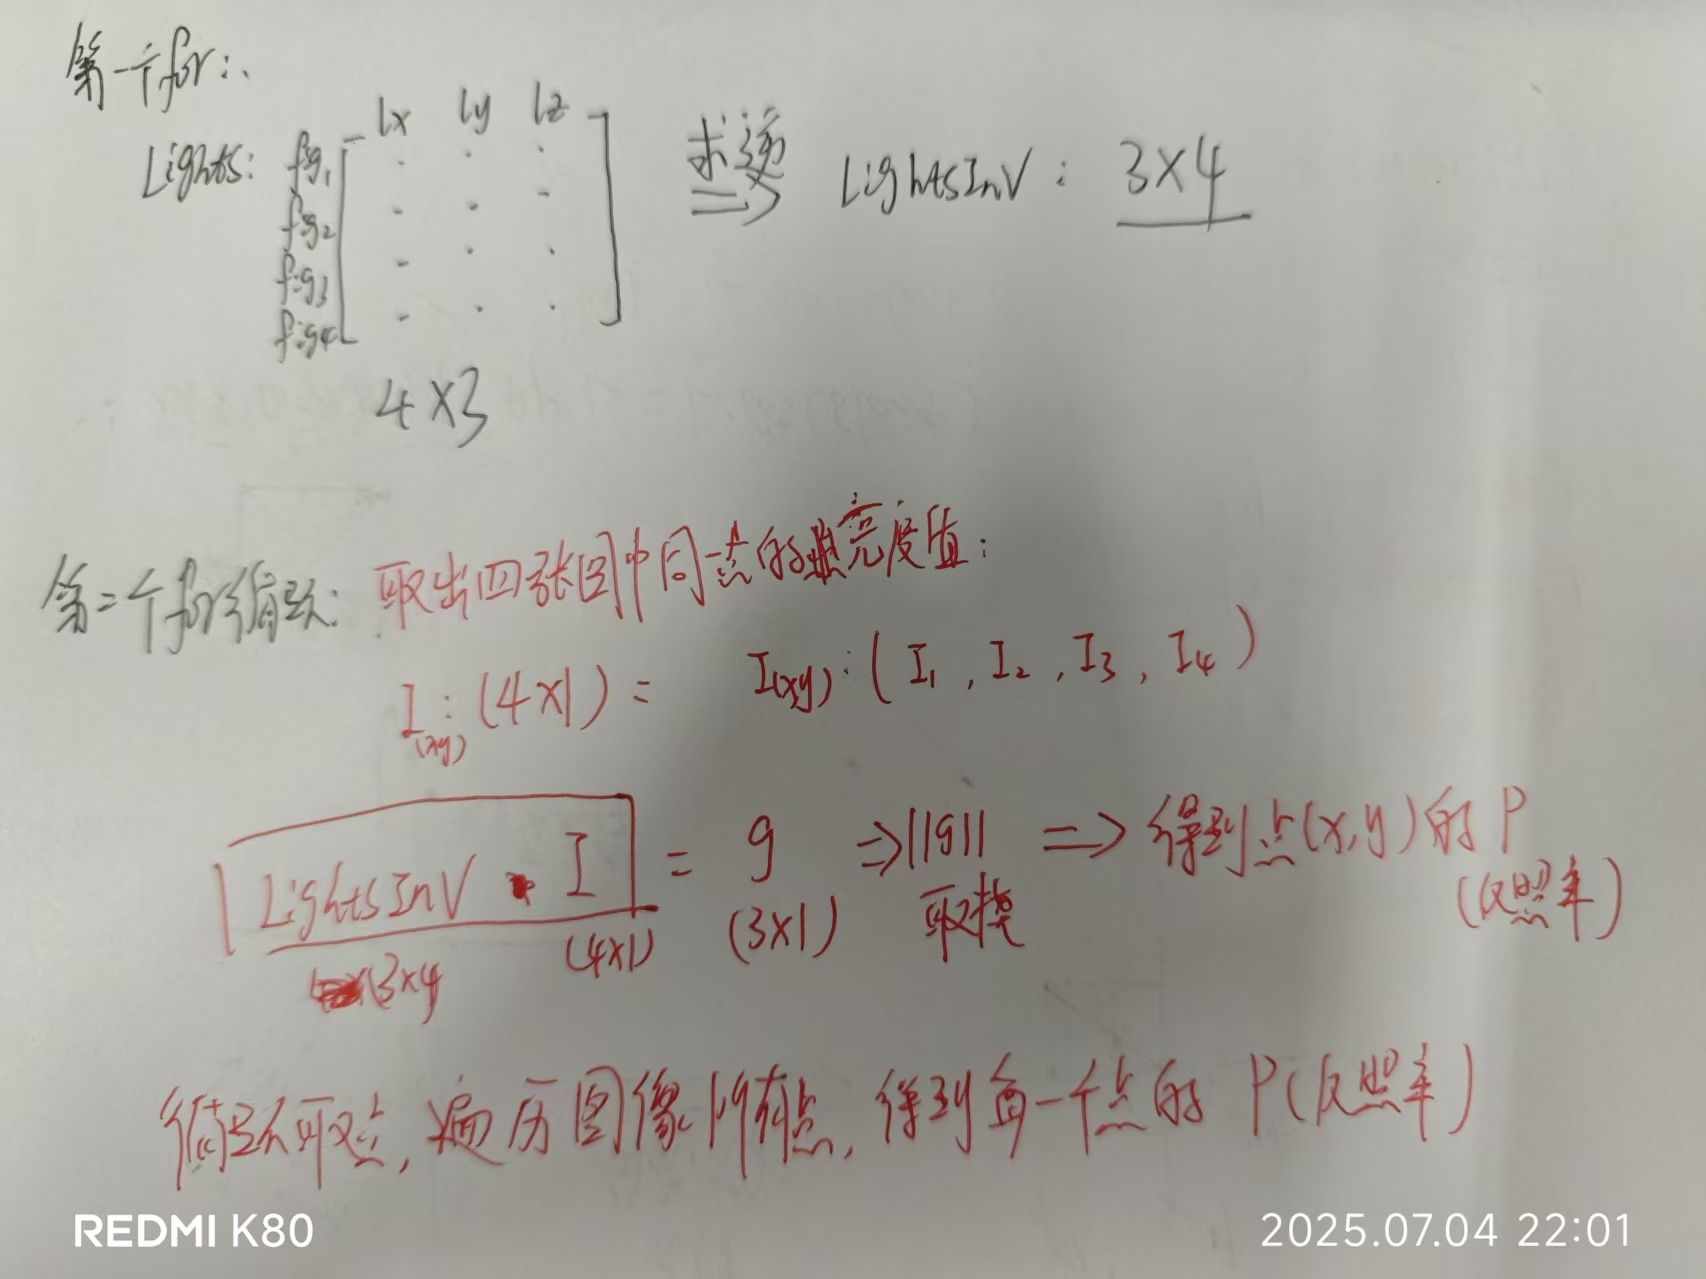 第一个for:
lx ly lz
Lights: fig1
fig2
fig3
fig4
4×3
求逆 ⇒ LightsInV: 3×4
第二个for循环: 取出四张图中同一点的亮度值:
I(xy): (4×1) = I(xy): (I1, I2, I3, I4)
LightsInV · I = g ⇒ ||g|| ⇒ 得到点(x,y)的P
(3×4 (4×1) (3×1) 取模 (反照率)
循环取点, 遍历图像所有点, 得到每一个点的 P(反照率)
REDMI K80
2025.07.04 22:01